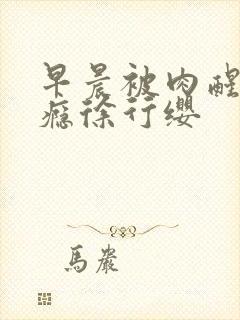 早晨被肉醒
瘾徐行缨
馬巖